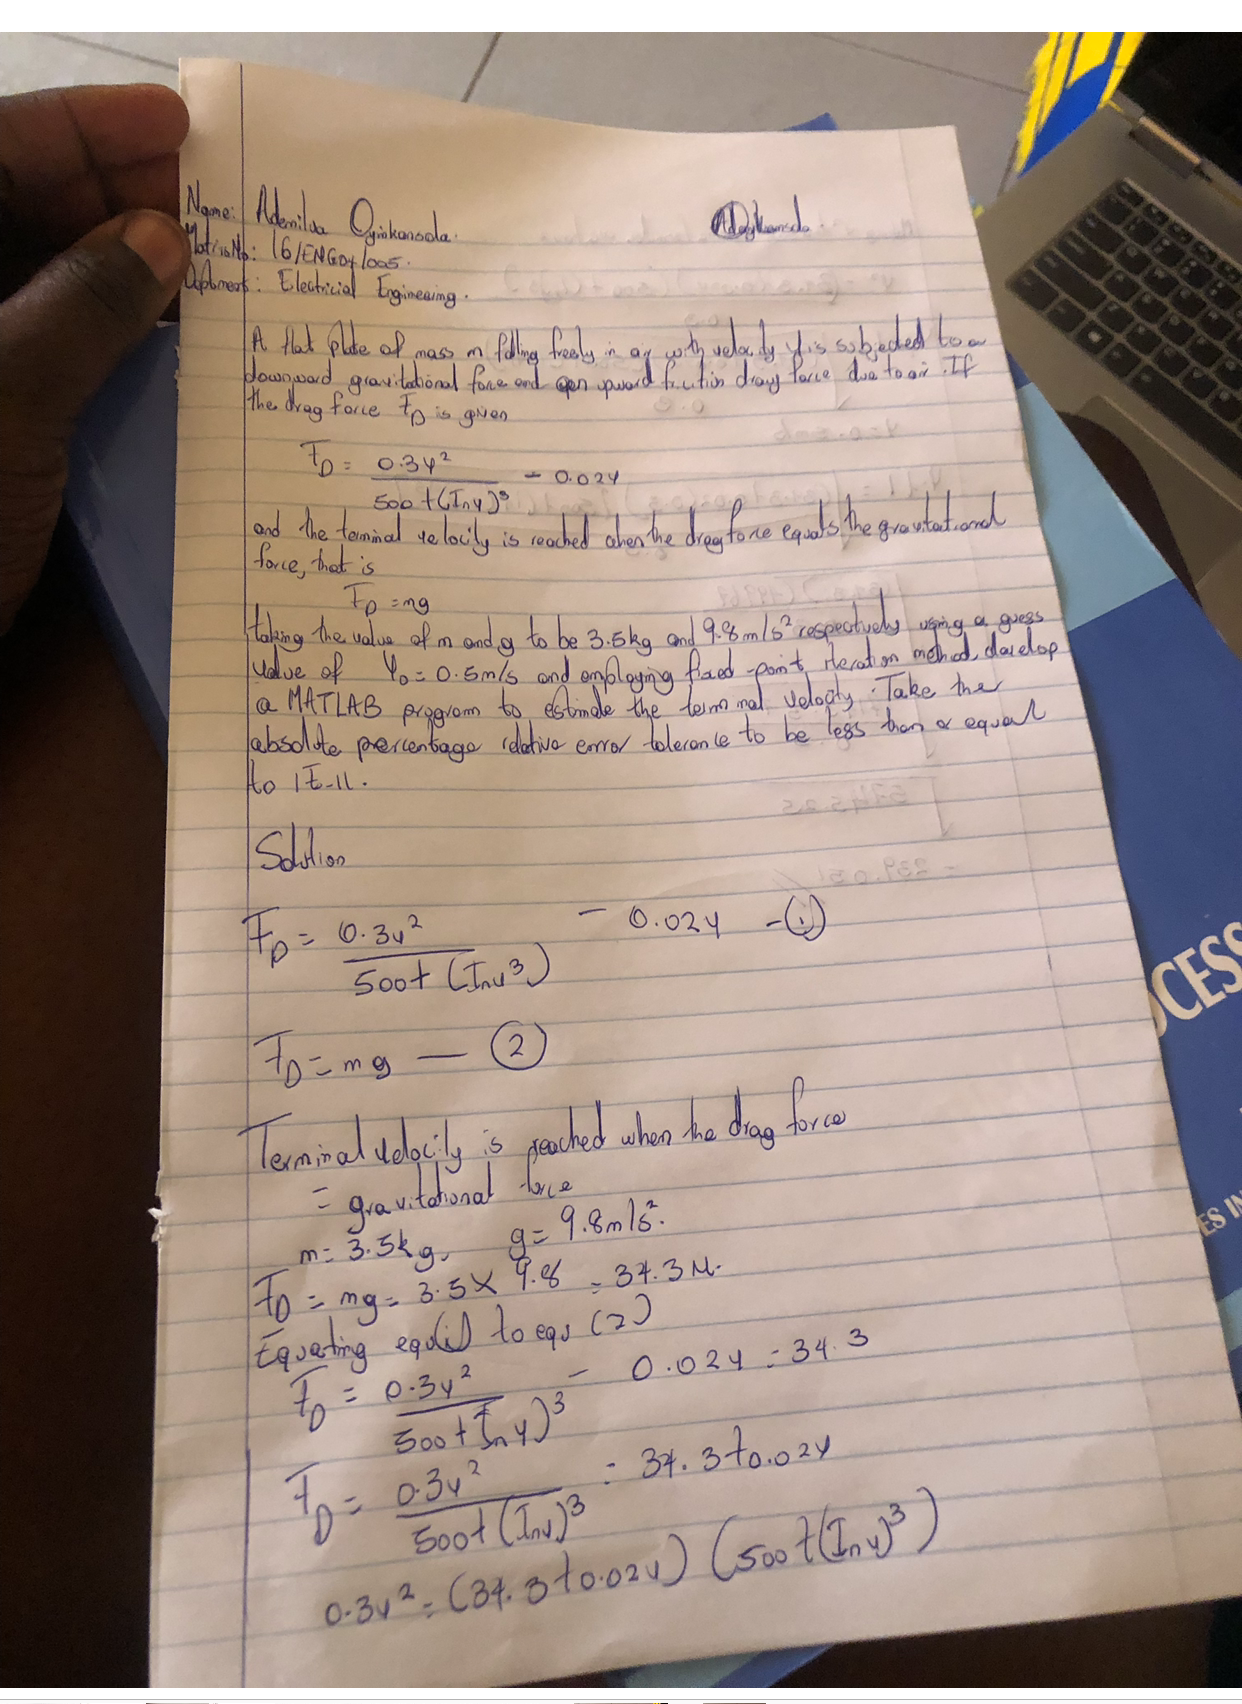 Name: Ademilua Oyinkansola.
Matric No: 16/ENG04/005.
Deptment: Electricial Engineering.
A flat plate of mass m falling freely in air with velocity V is subjected to a
downward gravitational force and an upward friction drag force due to air. If
the drag force FD is given
FD = 0.3V² / 500+(InV)³ - 0.02V
and the terminal velocity is reached when the drag force equals the gravitational
force, that is
FD = mg
taking the value of m and g to be 3.5kg and 9.8m/s² respectively using a guess
value of V0 = 0.5m/s and employing fixed-point iteration method, develop
a MATLAB program to estimate the terminal velocity. Take the
absolute percentage relative error tolerance to be less than or equal
to 1E-11.
Solution
FD = 0.3V² / 500+ (InV³) - 0.02V - (1)
FD = mg — (2)
Terminal velocity is reached when the drag force
= gravitational force
m = 3.5kg, g = 9.8m/s².
FD = mg = 3.5 X 9.8 = 34.3N.
Equating equ(i) to equ (2)
FD = 0.3V² / 500+(InV)³ - 0.02V = 34.3
FD = 0.3V² / 500+(InV)³ = 34.3+0.02V
0.3V² = (34.3+0.02V) (500+(InV)³)
OCESS
ES IN